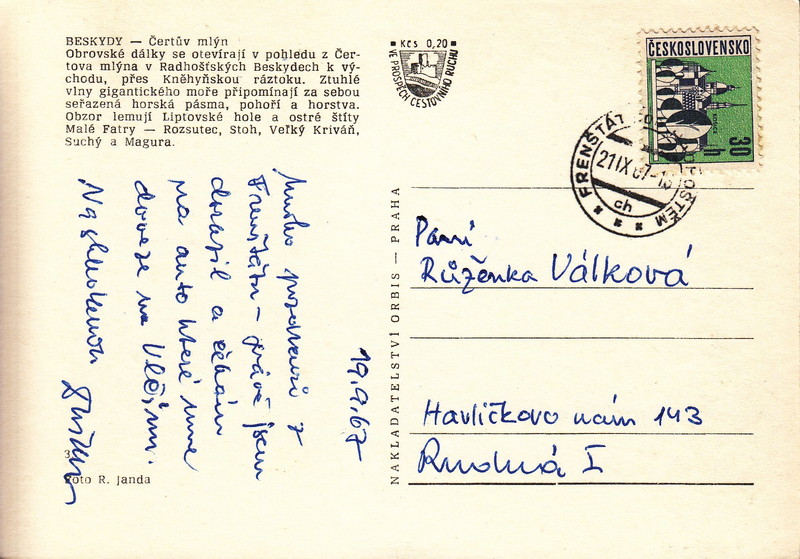 BESKYDY — Čertův mlýn
Obrovské dálky se otevírají v pohledu z Čer-
tova mlýna v Radhošťských Beskydech k vý-
chodu, přes Kněhyňskou ráztoku. Ztuhlé
vlny gigantického moře připomínají za sebou
seřazená horská pásma, pohoří a horstva.
Obzor lemují Liptovské hole a ostré štíty
Malé Fatry — Rozsutec, Stoh, Veľký Kriváň,
Suchý a Magura.
Kčs 0,20
VE PROSPĚCH CESTOVNÍHO RUCHU
ČESKOSLOVENSKO
30 h
FRENŠTÁT POD RADHOŠTĚM
21 IX 67-
ch
19.9.67
Mnoho pozdravů z
Frenštátu – právě jsem
dorazil a čekám
na auto které mne
doveze na
Na shledanou
Paní
Růženka Válková
Havlíčkovo nám 143
I
NAKLADATELSTVÍ ORBIS — PRAHA
3
Foto R. Janda